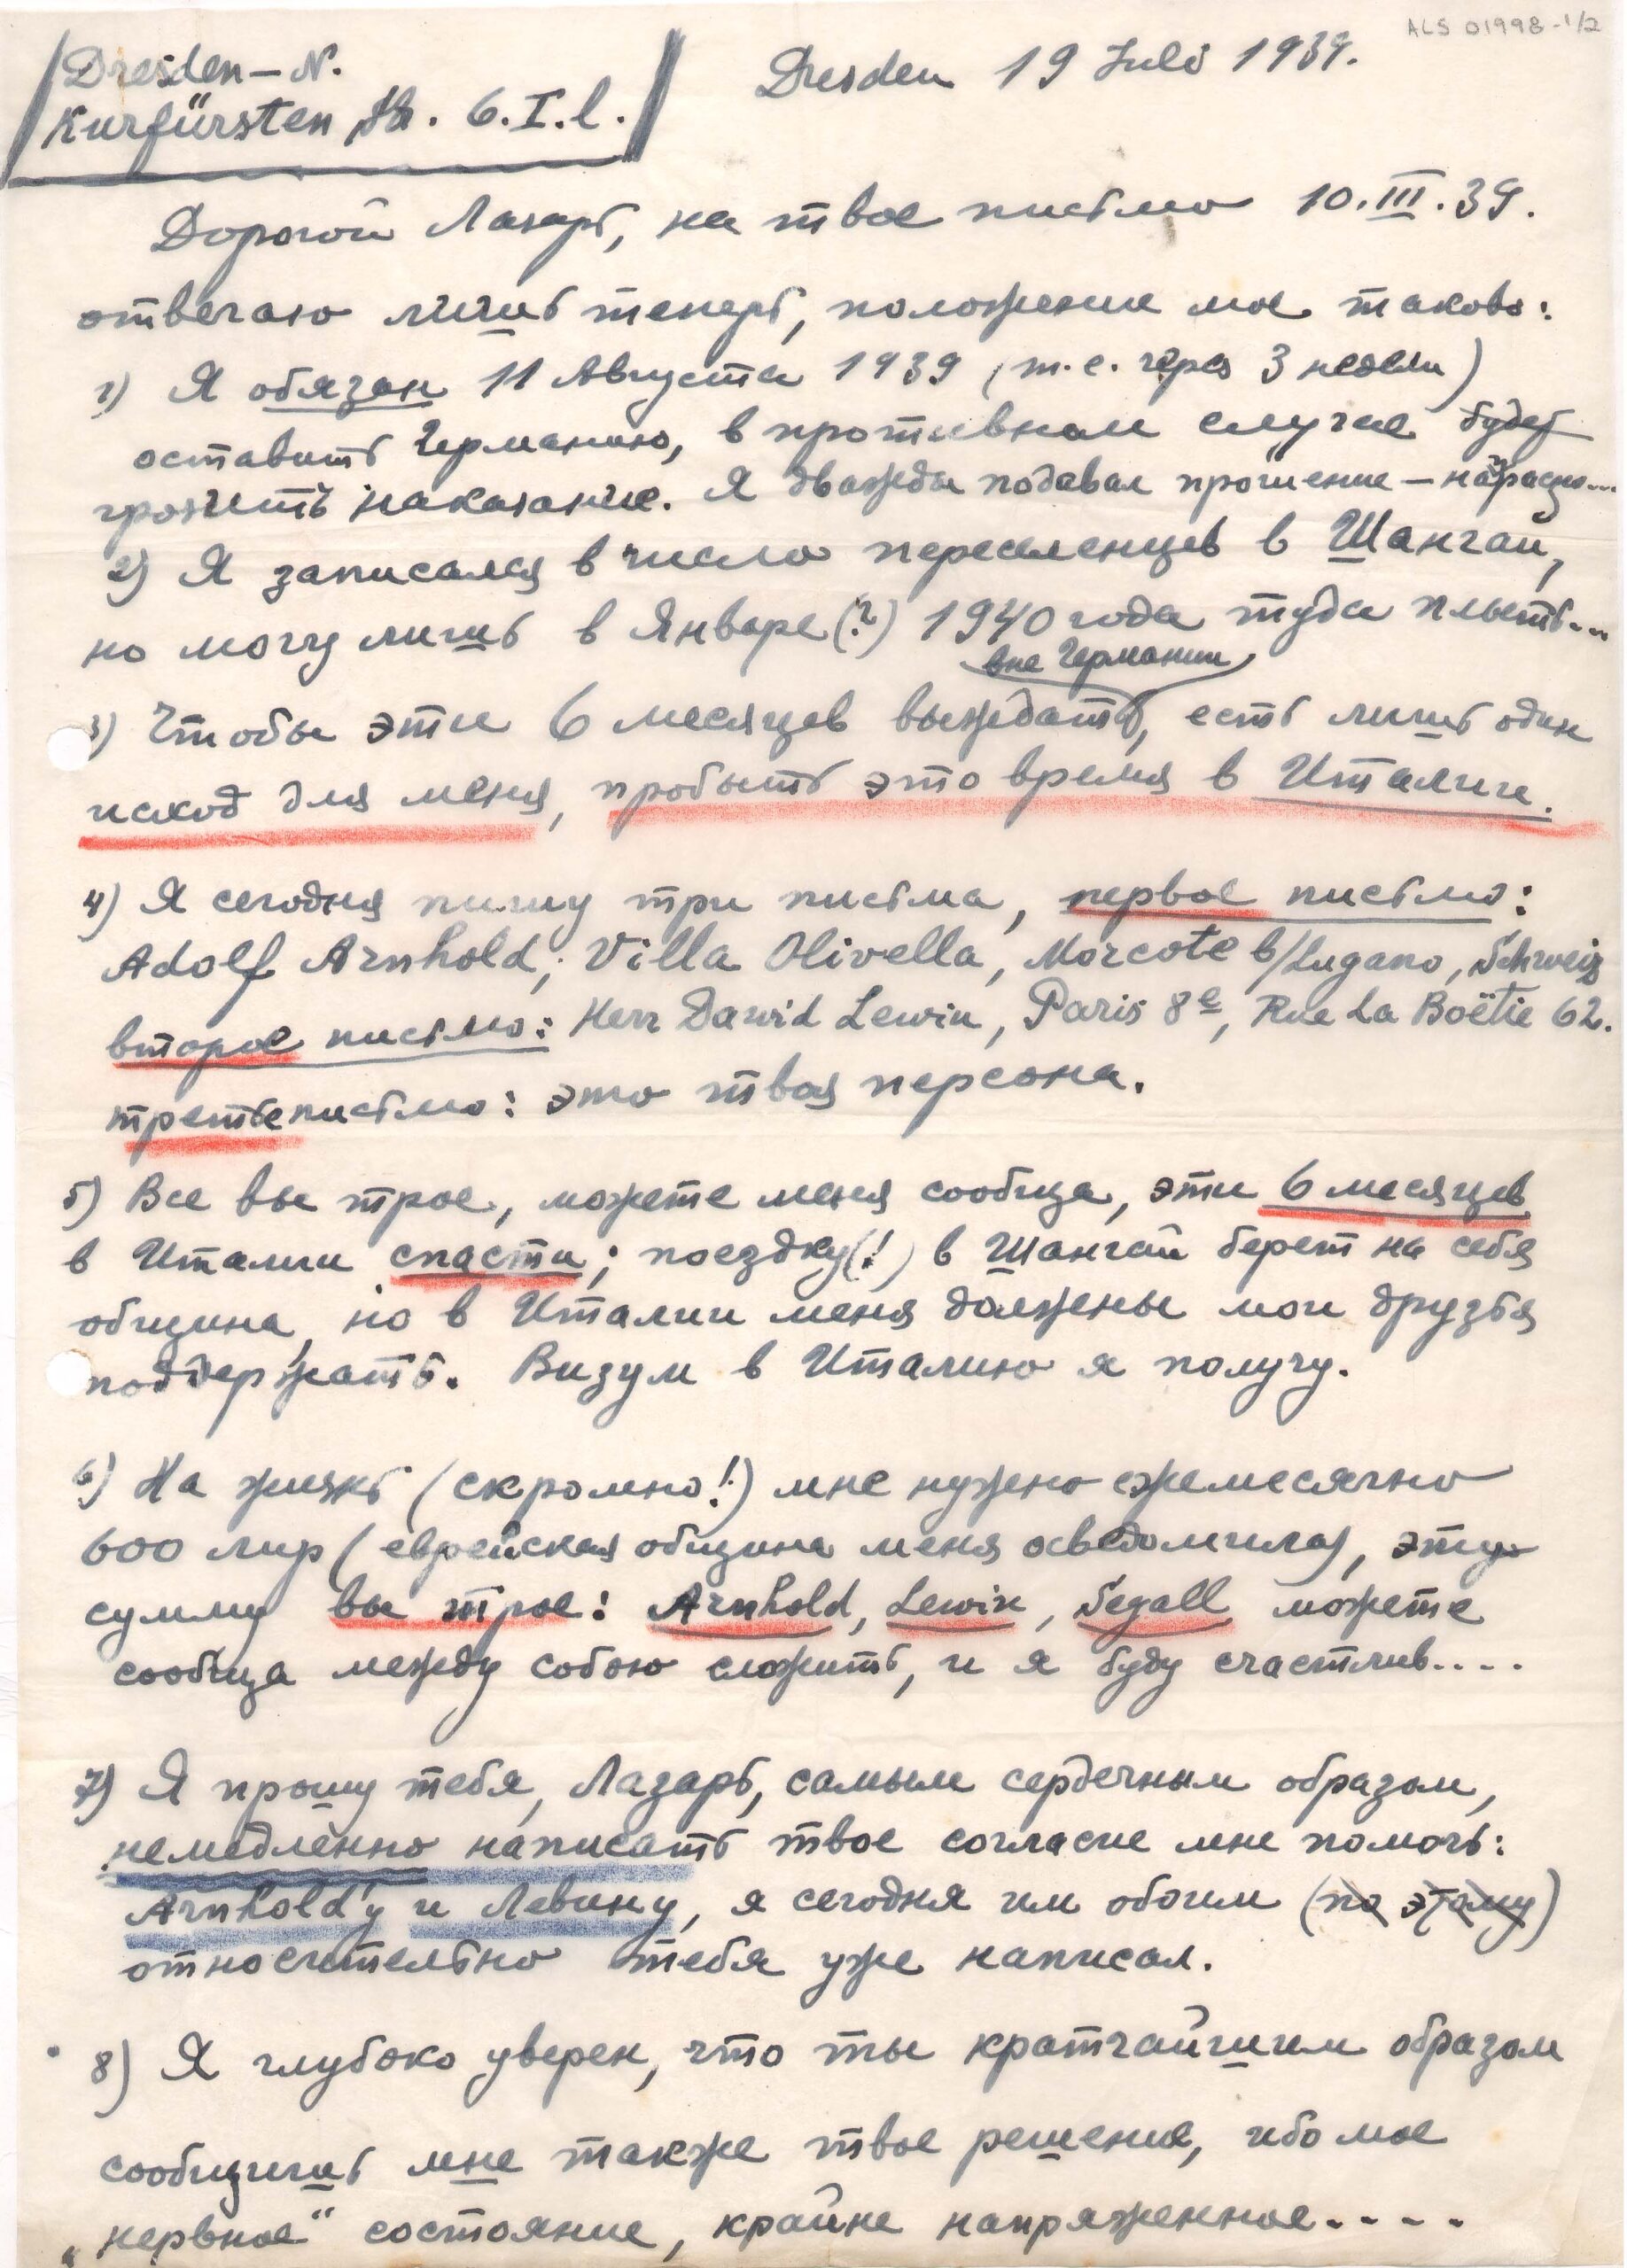 ALS 01998-1/2
Dresden-N.
Kurfürsten str. 6.I.l.
Dresden 19 Juli 1939.
Дорогой Лазарь, на твое письмо 10.III.39.
отвечаю лишь теперь, положение мое таково:
1) Я обязан 11 Августа 1939 (т.е. через 3 недели)
оставить Германию, в противном случае будет
грозить наказание. Я дважды подавал прошение – напрасно...
2) Я записался в число переселенцев в Шанхай,
но могу лишь в Январе (?) 1940 года туда плыть...
вне Германии
3) Чтобы эти 6 месяцев выждать, есть лишь один
исход для меня, пробыть это время в Италии.
4) Я сегодня пишу три письма, первое письмо:
Adolf Arnhold, Villa Olivella, Morcote b/Lugano, Schweiz
второе письмо: Herr David Lewin, Paris 8e, Rue La Boëtie 62.
третье письмо: это твоя персона.
5) Все вы трое, можете меня сообща, эти 6 месяцев
в Италии спасти; поездку (!) в Шанхай берет на себя
община, но в Италии меня должены мои друзья
поддержать. Визум в Италию я получу.
6) На жизнь (скромно!) мне нужно ежемесячно
600 лир (еврейская община меня осведомила), эту
сумму вы трое: Arnhold, Lewin, Segall можете
сообща между собою сложить, и я буду счастлив....
7) Я прошу тебя, Лазарь, самым сердечным образом,
немедленно написать твое согласие мне помочь:
Arnhold'у и Левину, я сегодня им обоим (по этому)
относительно тебя уже написал.
8) Я глубоко уверен, что ты кратчайшим образом
сообщишь мне также твое решение, ибо мое
„нервное“ состояние, крайне напряженное....